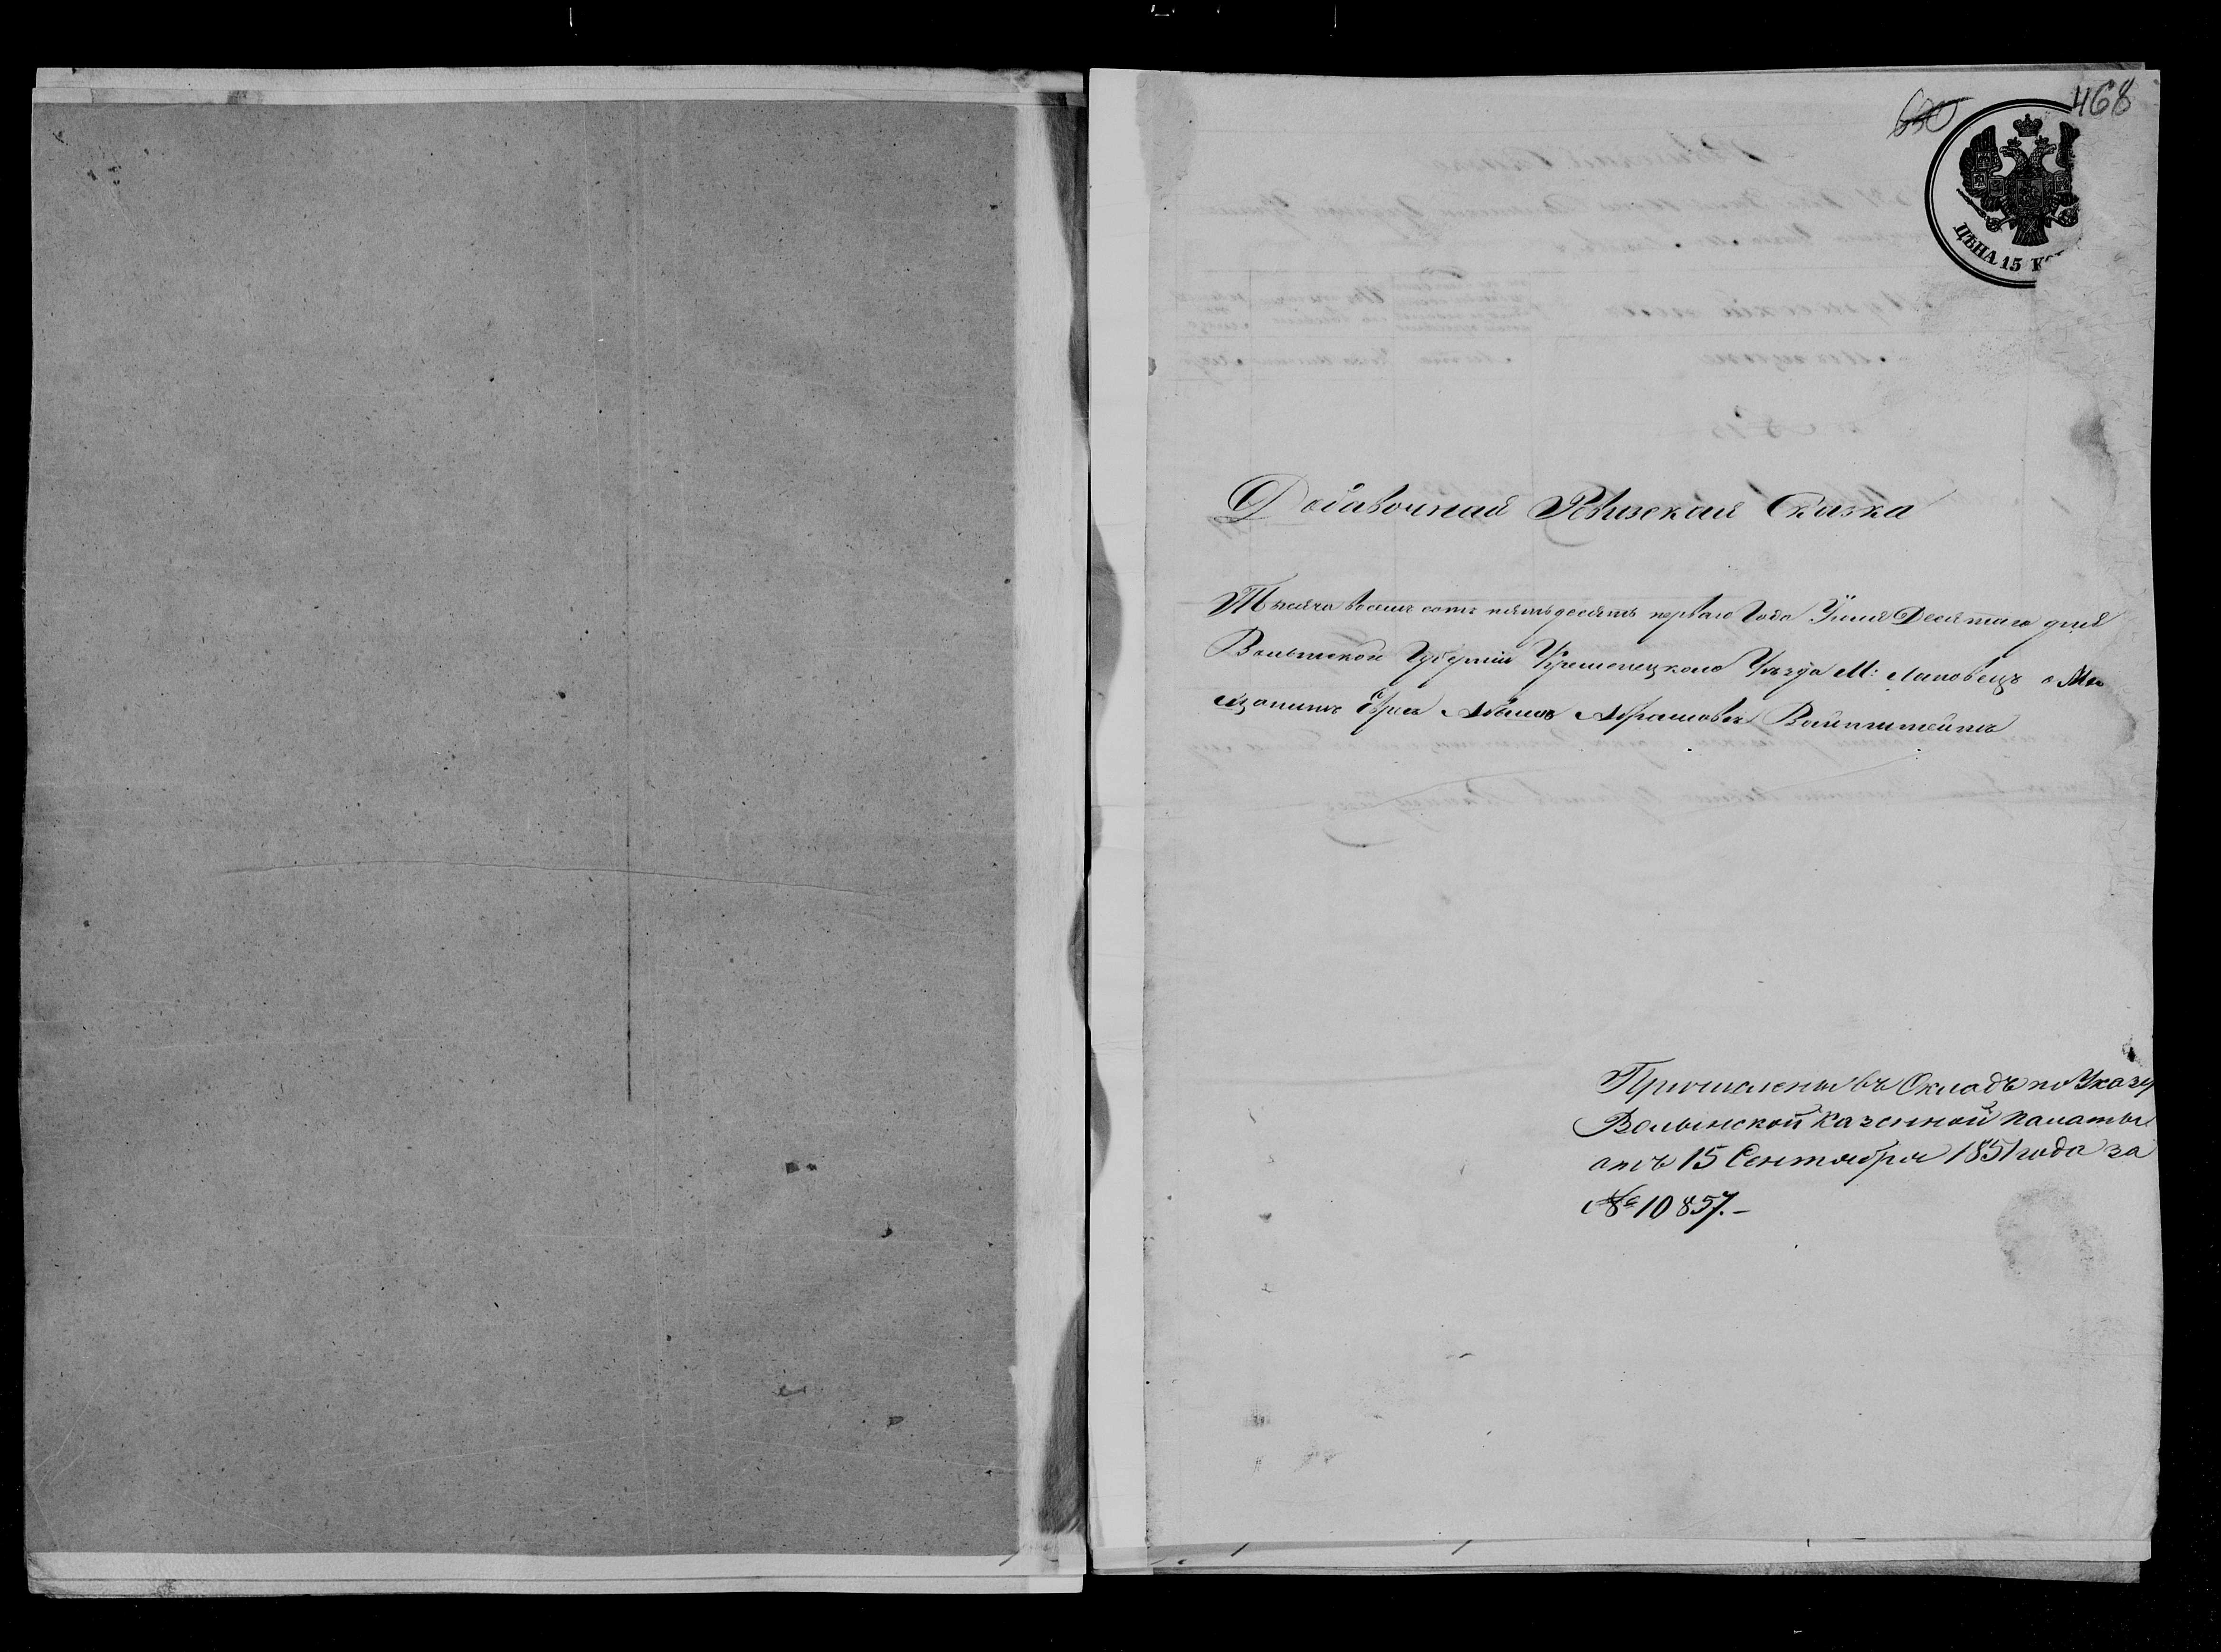 630
468
ЦѢНА 15 К
Добавочная Ревизская Сказка
Тысяча восемь сотъ пятьдесятъ перваго Года Юня Десятаго дня
Волынской Губерніи Кременецкаго Уѣзда М: Лановецъ о Ме
щанинѣ Евреѣ Абрамовѣ Вайнштейнѣ
Причислены въ Окладъ по Указу
Волынской Казенной палаты
отъ 15 Сентября 1851 года за
№ 10857.-